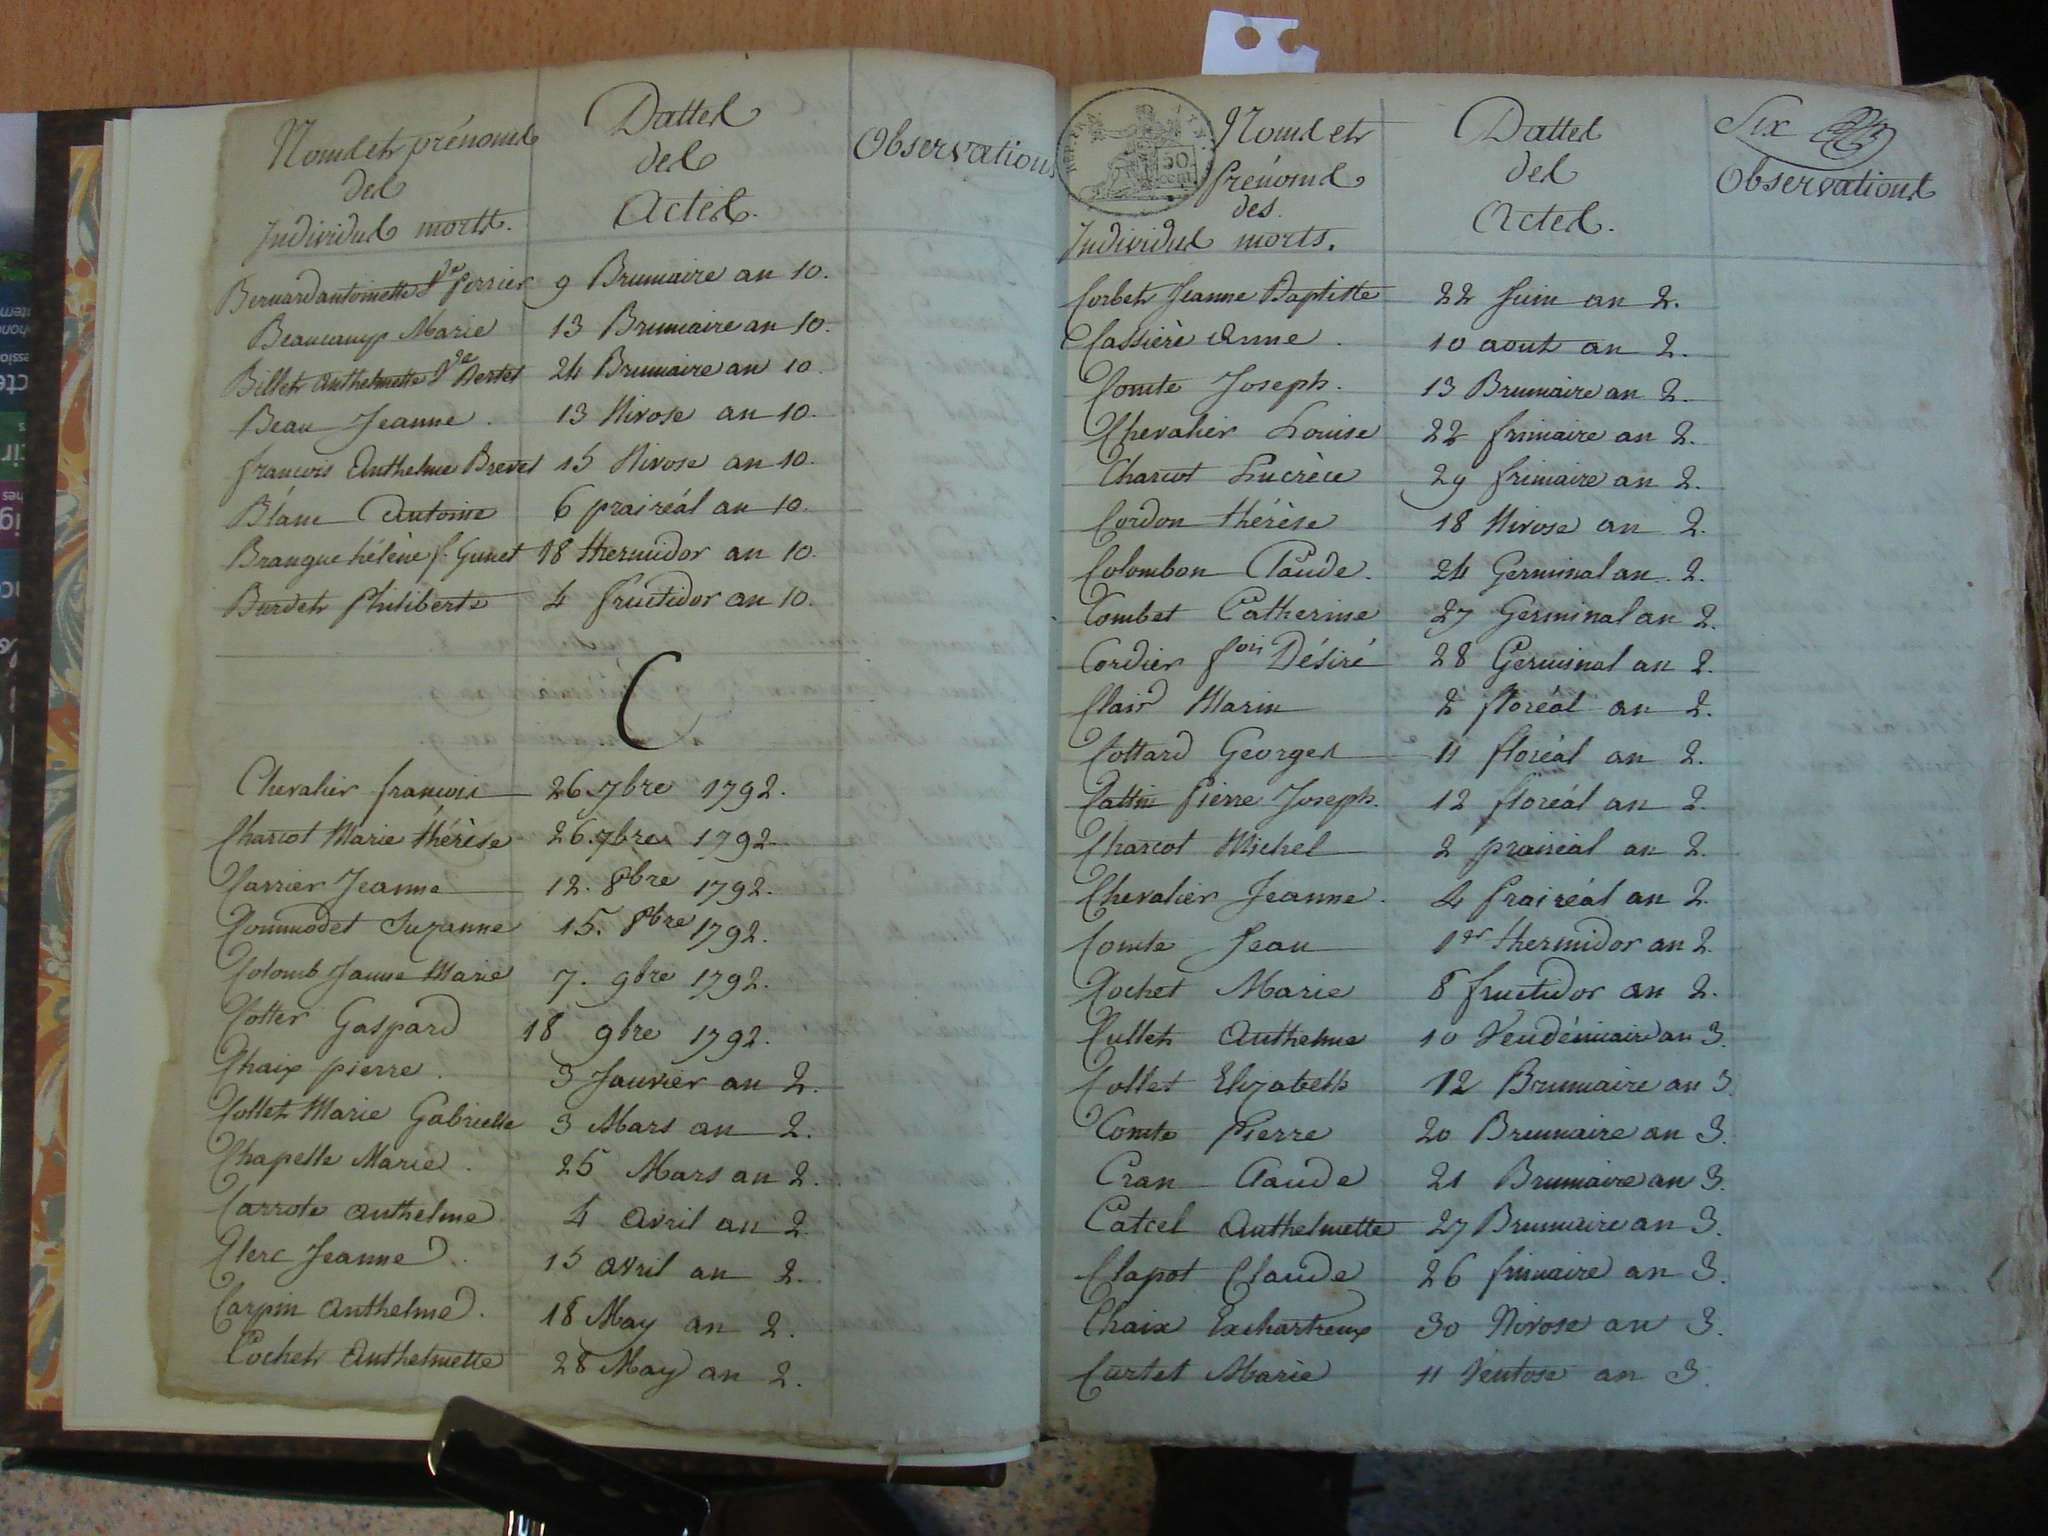 Noms et prénoms
des
Individus morts.
Dattes
des
Actes.
Observations
Bernard antoinette Ve perrier 9 Brumaire an 10.
Beaucamp Marie 13 Brumaire an 10.
Billet anthelmette Ve Bertet 24 Brumaire an 10.
Beau Jeanne. 13 Nivose an 10.
françois Anthelme Brevet 15 Nivose an 10.
Blanc Antoine 6 prairéal an 10.
Brangue hélène f. Gunet 18 thermidor an 10.
Burdet Philiberte 4 fructidor an 10.
C
Chevalier françois 26 7bre 1792.
Charcot Marie thérèse 26. 7bre 1792
Carrier Jeanne 12. 8bre 1792.
Commodet Suzanne 15. 8bre 1792.
Colomb Jeanne Marie 7. 9bre 1792.
Cotter Gaspard 18 9bre 1792.
Chaix pierre. 3 Janvier an 2.
Collet Marie Gabrielle 3 Mars an 2.
Chapelle Marie. 25 Mars an 2.
Carrote anthelme 4 avril an 2
Clerc Jeanne. 15 avril an 2.
Carpin anthelme. 18 May an 2.
Cochet Anthelmette 28 May an 2.
REP. FRA
50
CENT
Noms et
prénoms
des.
Individus morts.
Dattes
des
Actes.
Six
Observations
Corbet Jeanne Baptiste 22 Juin an 2.
Cassière Anne. 10 aout an 2.
Comte Joseph. 13 Brumaire an 2.
Chevalier Louise 22 frimaire an 2.
Charcot Lucrèce 29 frimaire an 2.
Cordon thérèse 18 Nivose an 2.
Colombon Claude. 24 Germinal an 2.
Combet Catherine 27 Germinal an 2.
Cordier fois Désiré 28 Germinal an 2.
Clair Marin 2 floréal an 2.
Cottard Georges 11 floréal an 2.
Cattin Pierre Joseph. 12 floréal an 2.
Charcot Michel 2 prairéal an 2.
Chevalier Jeanne. 4 prairéal an 2.
Comte Jean 1er thermidor an 2
Cochet Marie 8 fructidor an 2.
Cullet Anthelme 10 Vendémiaire an 3.
Collet Elizabeth 12 Brumaire an 3.
Comte Pierre 20 Brumaire an 3.
Cran Claude 21 Brumaire an 3.
Catcel Anthelmette 27 Brumaire an 3.
Clapot Claude 26 frimaire an 3.
Chaix Exchartreux 30 Nivose an 3.
Curtet Marie 11 Ventose an 3.